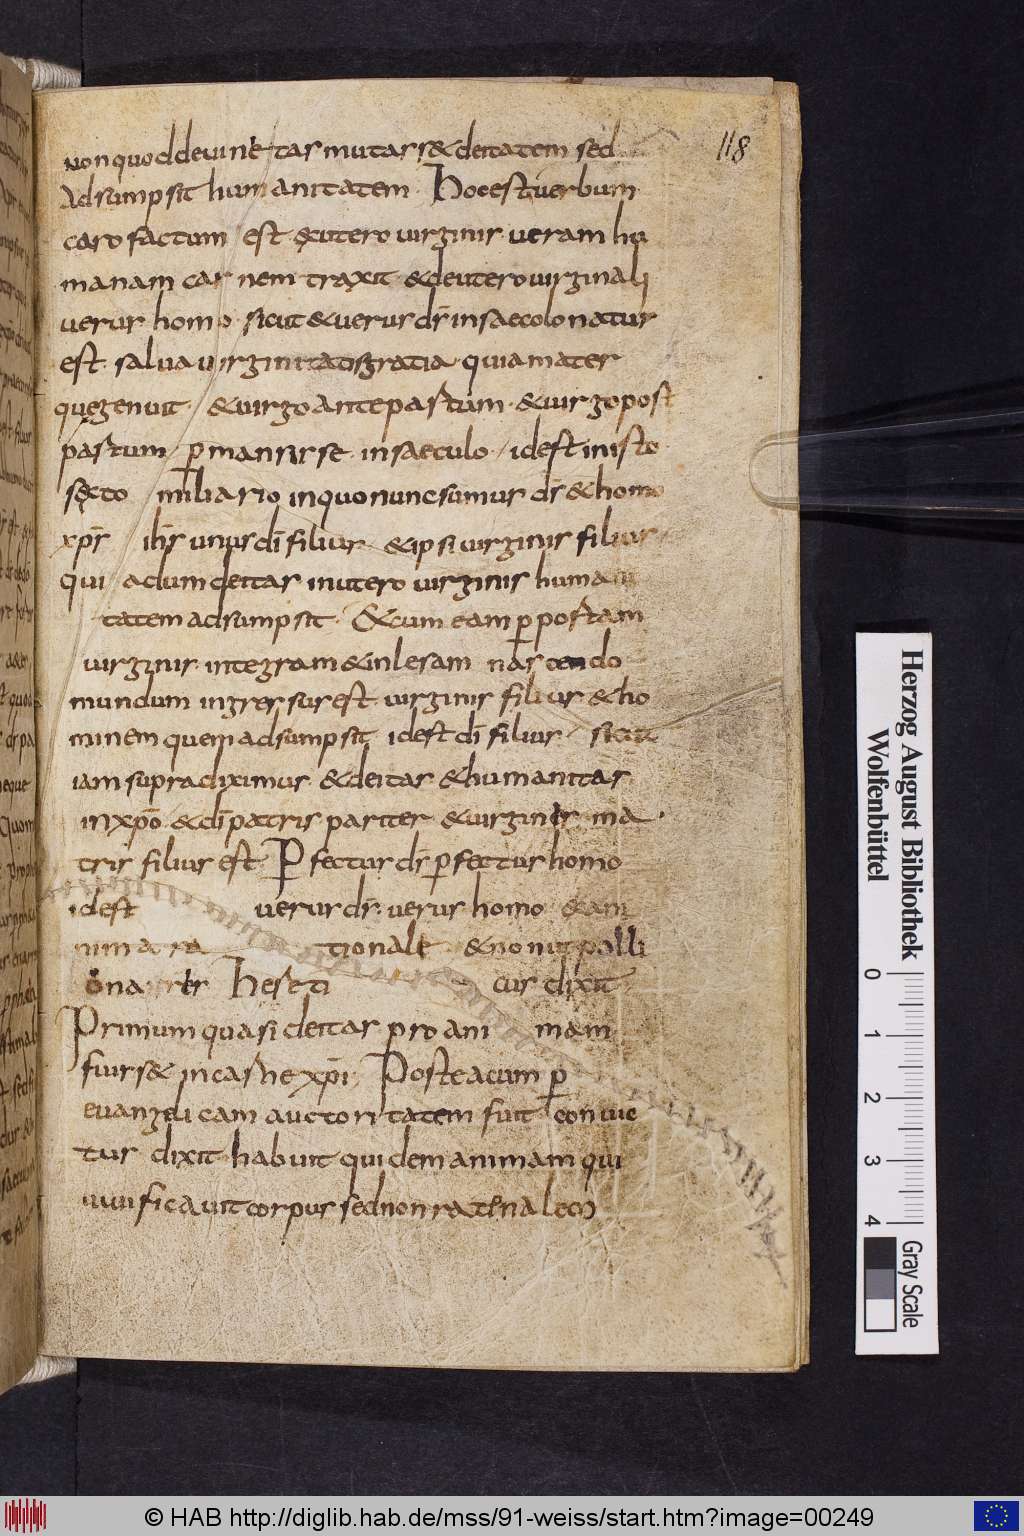 118
non quod devinitas mutasset deitatem sed
Adsumpsit humanitatem. Hoc est verbum
caro factum est ex utero virginis veram hu
manam carnem traxit & de utero virginali
verus homo sicut & verus d̄s in saecolo natus
est. salva virginitatis gratia. quia mater
que genuit. & virgo ante partum. & virgo post
partum p mansisse in saeculo. id est in isto
sexto miliario in quo nunc sumus d̄s & homo
xp̄s ih̄s unus d̄i filius & ipsi virginis filius
qui dum deitas in utero virginis humani
tatem adsumpsit. & cum eam p portam
virginis integram & inlesam nascendo
mundum ingressus est virginis filius & ho
minem quem adsumpsit id est d̄i filius sicut
iam supra diximus & deitas & humanitas
in xp̄o & d̄i patris pariter & virginis ma
tris filius est. P fectus d̄s p fectus homo
id est verus d̄s. verus homo & ani
tionale & non ut palli
heseti cus dixit
Primum quasi deitas pro ani mam
fuiss& in carne xp̄i. Postea cum p
evangelicam auctoritatem fuit convic
tus dixit habuit quidem animam qui
vivificavit corpus sed non rationalem
Herzog August Bibliothek
Wolfenbüttel
0 1 2 3 4
Gray Scale
© HAB http://diglib.hab.de/mss/91-weiss/start.htm?image=00249